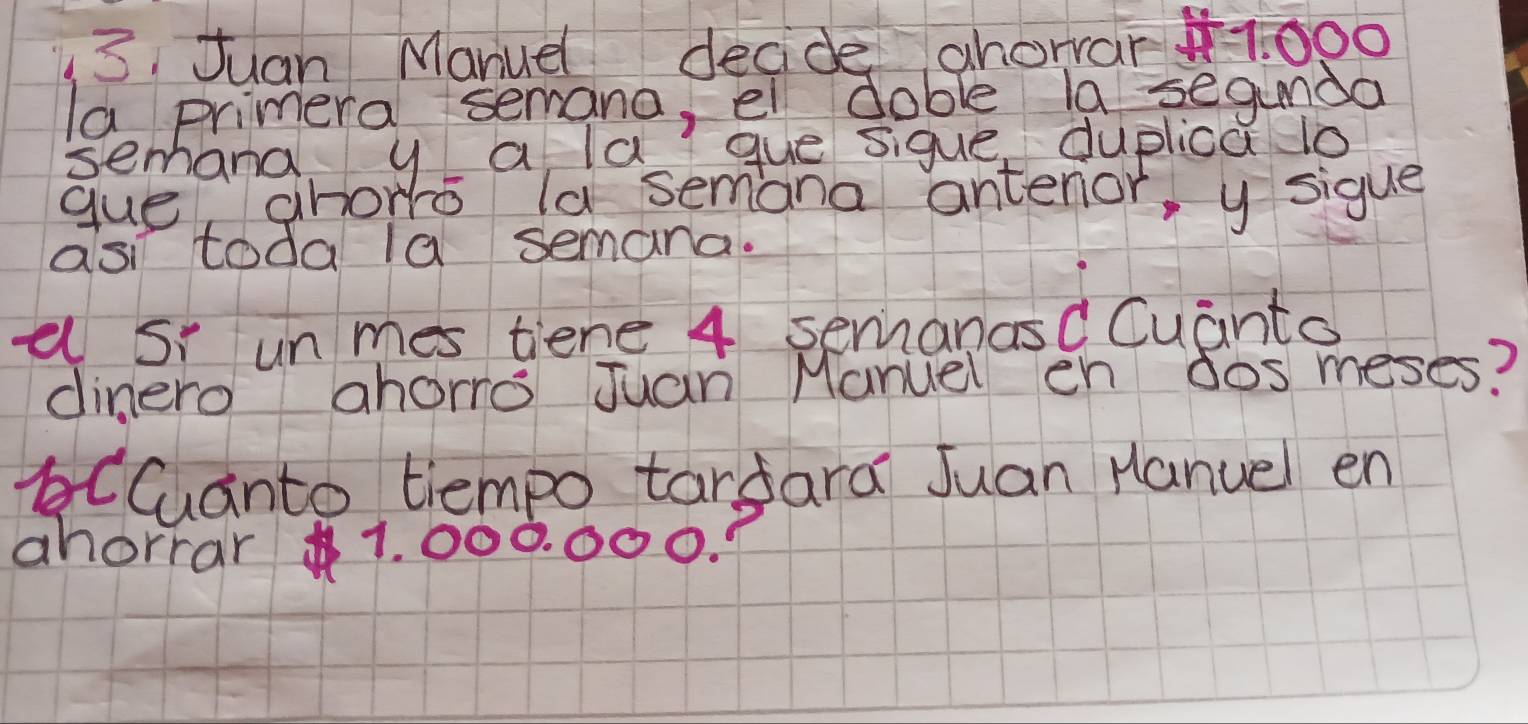 13. Juan Manuel decide ahorrar $1.000
la primera semana, el doble la segunda
semana y a la que sigue, duplica lo
que ahorró la semana anterior, y sigue
asi toda la semana.
a Si un mes tiene 4 semanas ¿Cuánto
dinero ahorró Juan Manuel en dos meses?
b ¿Cuánto tiempo tardará Juan Manuel en
ahorrar $1.000.000.?